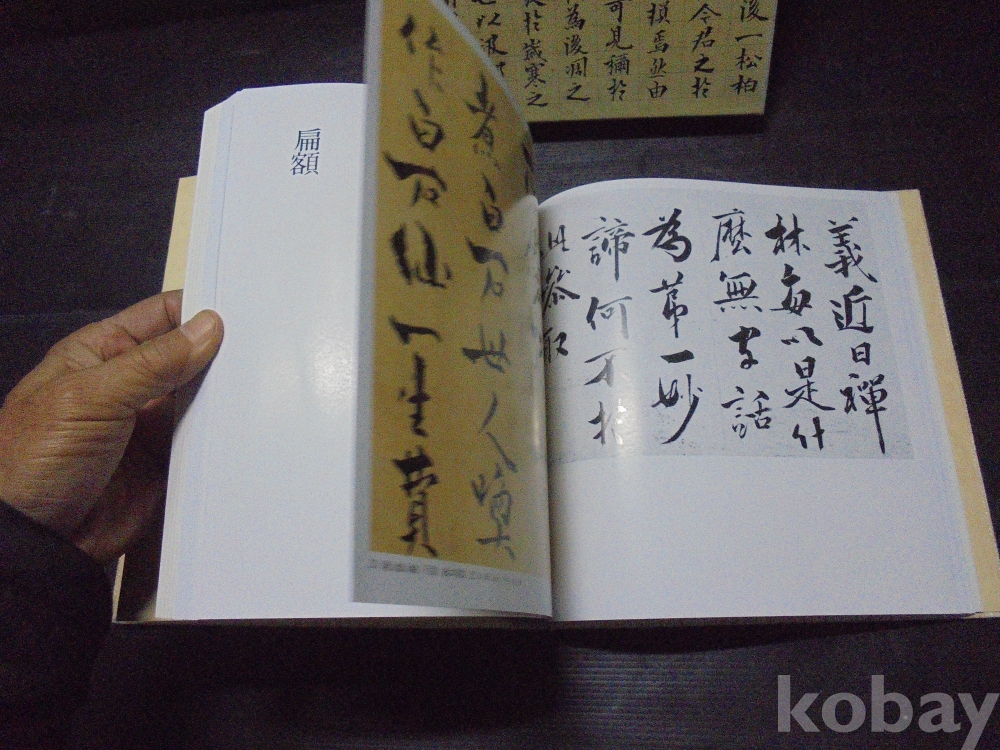 後一松柏
今君之於
損焉然由
可見稱於
為後凋之
於歲寒之
扁額
世人嗔
一坐費
義近日禪
林每以是什
麼無字話
為第一妙
諦何不於
此參取
kobay